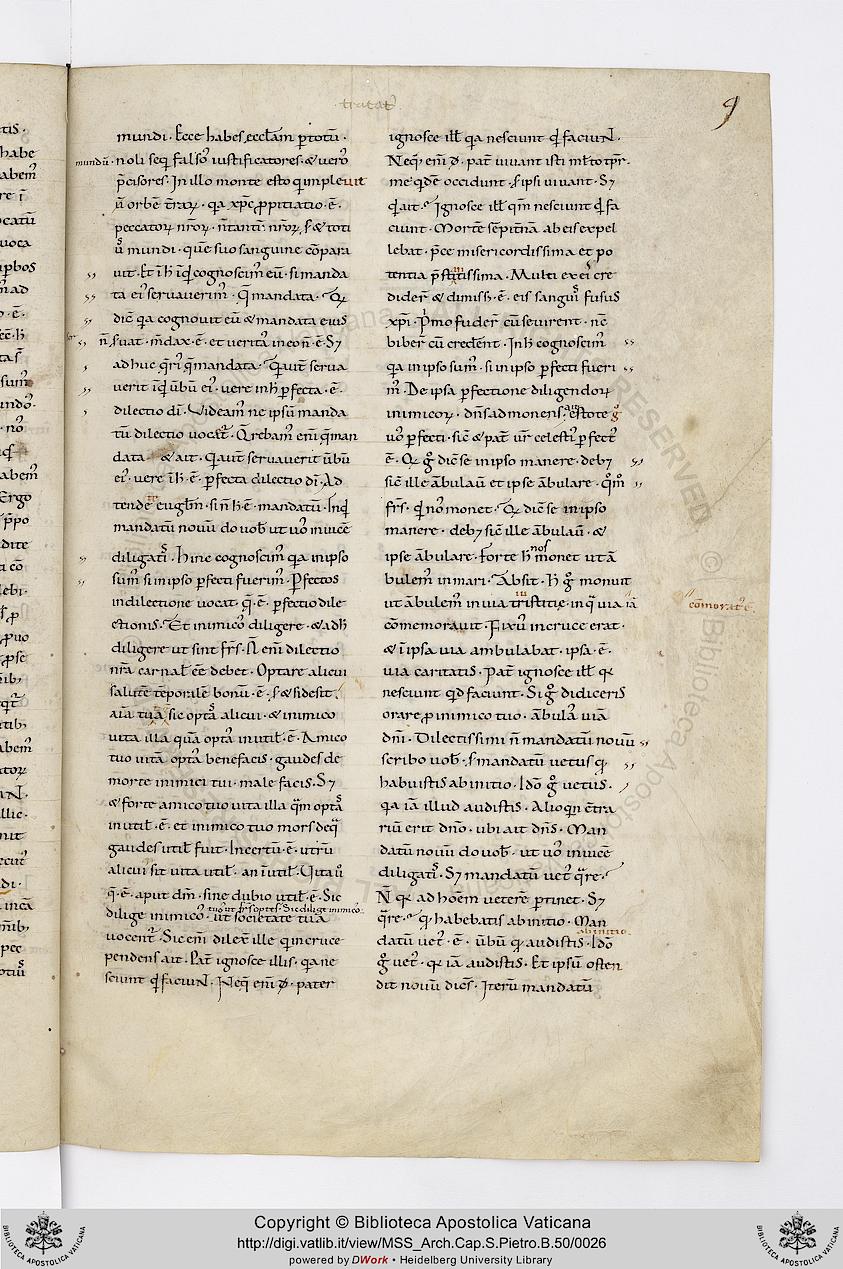 tractat
9
mundi· Ecce habes eccłam p totũ·
mundũ· noli seq̃ falsos iustificatores· & veros
p̃cisores· In illo monte esto q̃ impleuit
orbẽ t̃rarꝝ· q̃a xp̃c ꝓpitiatio· ẽ·
peccatorꝝ nr̃orꝝ· ñ tantũ nr̃orꝝ, s; & toti
us mundi· quẽ suo sanguine cõpara
uit· Et ĩ h̃ ĩq̃d cognoscim̃ eũ· si manda
ta ei' servaverim̃· q̃ mandata· Q̃
dic̃ q̃a cognovit eũ & mandata eius
ñ s̃uat· m̃dax· ẽ· et verita ĩ eo ñ· ẽ· S;
adhuc q̃ri' q̃ mandata· Qui aut̃ serva
verit ĩq̃d ũbũ ei'· vere in h̃ p̃fecta· ẽ·
dilectio di'· Videam̃ ne ipsũ manda
tũ dilectio vocat̃· Q̃rebam̃ eni' q̃ man
data· & ait· Qui aut̃ servaverit ũbũ
ei'· vere ĩ h̃· ẽ· p̃fecta dilectio di'· Ad
tende eug̃lm̃· si ñ h̃· ẽ· mandatũ· Inq̃d
mandatũ nouũ do uob' ut uos inuicẽ
diligatis· Hinc cognoscim̃ q̃a in ipso
sum̃ si in ipso p̃fecti fuerim̃· P̃fectos
in dilectione uocat· q̃· ẽ· p̃fectio dile
ctionis· Et inimicos diligere· & ad h̃
diligere ut sint fr̃s· Ñ eni' dilectio
nr̃a carnal' ẽe debet· Optare alicui
salutẽ tẽporalẽ bonũ· ẽ· s; & si desit
aĩa tuta, sic opta alicui· & inimico
uita illa quã optas inutil'· ẽ· Amico
tuo uitã optas benefacis· gaudes de
morte inimici tui· male facis· S;
& forte amico tuo uita illa q̃m optas
inutil'· ẽ· et inimico tuo mors de q̃
gaudes util' fuit· Incertũ· ẽ· utrũ
alicui sit uita util'· an inutil'· Uita ũ
q̃· ẽ· aput dm̃· sine dubio util'· ẽ· Sic
tuos ut fr̃s optes· Sic dilige inimicos
dilige inimicos· ut societate tua
uocent̃· Sic eni' dilexit ille qui in cruce
pendens ait· Pat̃ ignosce illis· q̃a ne
sciunt q̃d faciuN· Neq̃ eni' dix̃· pater
ignosce ill' q̃a nesciunt q̃d faciuN·
Neq̃ eni' d̃· pat̃ uiuant isti mlto tp̃r·
me q̃dẽ occidunt· s; ipsi uiuant· S;
q̃d ait· Ignosce ill' q̃m̃ nesciunt q̃d fa
ciunt· Mortẽ sep̃itnã ab eis expel
lebat· p̃ce misericordissima et po
tentia p̃stitissima· Multi ex ei's cre
diderũ & dimiss̃· ẽ· eis sanguis fusus
xp̃i· P̃mo fuderũ cũ seuirent· nc̃
biberũ cũ credent· In h̃ cognoscim̃
q̃a in ipso sum'· si in ipso p̃fecti fueri
m̃· De ipsa p̃fectione diligendorꝝ
inimicorꝝ· dñs admonens· ait· estote g̃
uos p̃fecti· sic̃ & pat̃ ur̃ celestis p̃fect'
ẽ· Q̃ g̃ dic̃ se in ipso manere· deb;
sic̃ ille ãbulauit et ipse ãbulare· Q̃m̃
fr̃s· q̃d nos monet· Q̃ dic̃ se in ipso
manere· deb; sic̃ ille ãbulauit· &
ipse ãbulare· Forte h̃ nos monet ut ã
bulem̃ in mari· Absit· H̃ g̃ monuit
ut ãbulem̃ in uia iustitie· in q̃ uia iã
cõmoratus ẽ
cõmemorauit· Fixus in cruce erat·
& ĩ ipsa uia ambulabat· ipsa· ẽ·
uia caritatis· Pat̃ ignosce ill' q̃
nesciunt q̃d faciunt· Si g̃ didiceris
orare ꝓ inimico tuo· ãbulas uiã
dñi· Dilectissimi ñ mandatũ nouũ
scribo uob'· s; mandatũ uetus q̃
habuistis ab initio· Ido g̃ uetus·
q̃a iã illud audistis· Alioq̃n c̃tra
rius erit dño· ubi ait dñs· Man
datũ nouũ do uob'· ut uos inuicẽ
diligatis· S; mandatũ uet̃ q̃re·
Ñ q̃ ad hoĩem ueterẽ p̃tinet· S;
q̃re· q̃ habebatis ab initio· Man
ab initio
datũ uet'· ẽ· ũbũ q̃ audistis· Ido
g̃ uet'· q̃ iã audistis· Et ipsũ osten
dit nouũ dicẽs· Iterũ mandatũ
RESERVED
© Biblioteca Apostolica Vaticana
Copyright © Biblioteca Apostolica Vaticana
http://digi.vatlib.it/view/MSS_Arch.Cap.S.Pietro.B.50/0026
powered by DWork • Heidelberg University Library
BIBLIOTECA APOSTOLICA VATICANA
BIBLIOTECA APOSTOLICA VATICANA